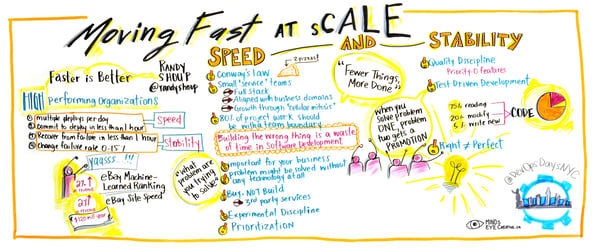 Moving Fast AT SCALE
Faster is Better
RANDY
SHOUP
@randyshoup
HIGH performing Organizations
multiple deploys per day
commit to deploy in less than 1 hour
speed
Recover from failure in less than 1 hour
change failure rate 0-15%
stability
yaasss...!!!
eBay Machine-
Learned Ranking
eBay Site Speed
"What
problem are
you trying
to solve"
SPEED
2 pizzas!
Conway's Law
Small "service" teams
Full stack
Aligned with business domains
Growth through "cellular mitosis"
80% of project work should
be within team boundary
Building the wrong thing is a waste
of time in Software Development
important for your business
problem might be solved without
any technology at all
Buy, NOT Build
3rd party services
Experimental Discipline
Prioritization
AND
"Fewer Things,
More Done"
when you
solve problem
ONE, problem
two gets a
PROMOTION
STABILITY
Quality Discipline
Priority-0 features
Test Driven Development
75% reading
20% modify
5% write new
CODE
Right ≠ Perfect
@DevOpsDaysNYC
MINDS
EYE CREATIVE.CA